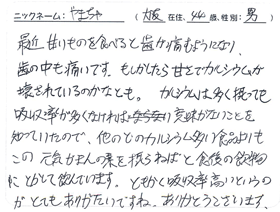 ニックネーム: やまちゃ （大阪 在住、44 歳、性別: 男 ）
最近 甘いものを食べると歯が痛むようになり、
歯の中も痛いです。もしかしたら甘さでカルシウムが
壊されているのかなとも。カルシウムは多く摂っても
吸収率が多くなければ意味がないことを
知っていたので、他のどのカルシウム多い食品よりも
この 元気 の素を摂らねばと 食後の飲物
にとかして飲んでいます。ともかく吸収率高いというの
がとてもありがたいですね。ありがとうございます。